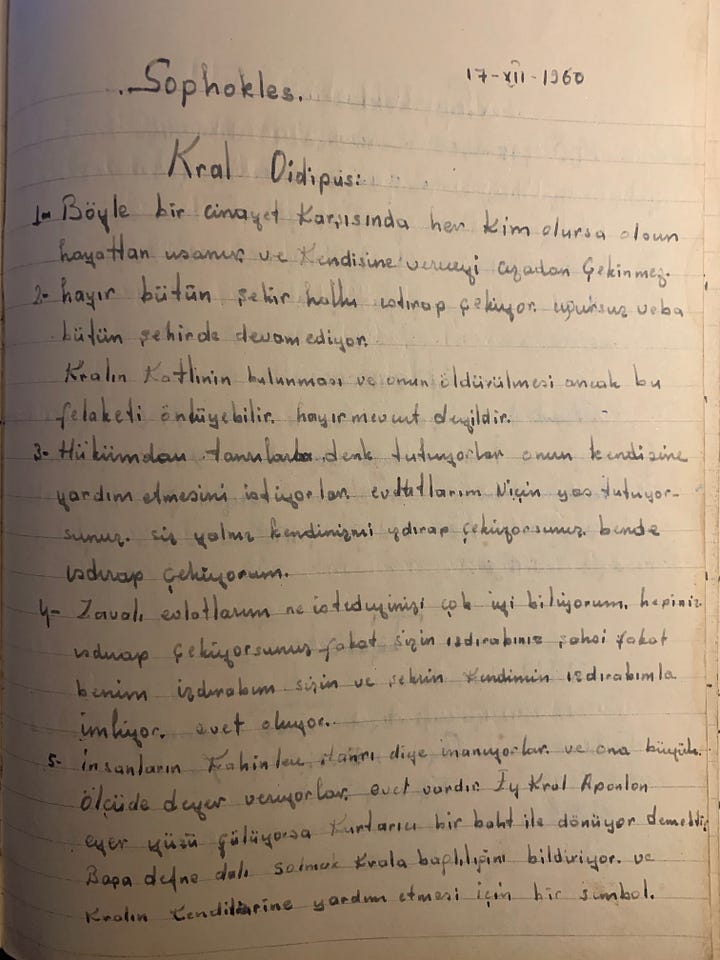 Sophokles.
17-XII-1960
Kral Oidipus:
1- Böyle bir cinayet Karşısında her kim olursa olsun
hayattan usanır ve Kendisine vereceyi cezadan Çekinmez.
2- hayır bütün şehir halkı ıstırap çekiyor. uğursuz veba
bütün şehirde devam ediyor.
Kralın Katlinin bulunması ve onun öldürülmesi ancak bu
felaketi önlüyebilir. hayır mevcut deyildir.
3- Hükümdarı tanrılarla denk tutuyorlar onun kendisine
yardım etmesini istiyorlar. evlatlarım Niçin yas tutuyor-
sunuz. siz yalnız kendinizmi ızdırap çekiyorsunuz. bende
ısdırap çekiyorum.
4- Zavalı evlatlarım ne istediyinizi çok iyi biliyorum. hepiniz
ısdırap çekiyorsunuz fakat sizin ızdırabınız şahsi fakat
benim izdırabım sizin ve şehrin Kendimin ızdırabımla
inliyor. evet oluyor.
5- insanların Kahinleri tanrı diye inanıyorlar. ve ona büyük
ölçüde deyer veriyorlar. evet vardır. Ey Kral Aponlon
eyer yüzü gülüyorsa Kurtarıcı bir baht ile dönüyor demektir
Başa defne dalı Krala baplılığını bildiriyor. ve
Kralın Kendilerine yardım etmesi için bir sembol.